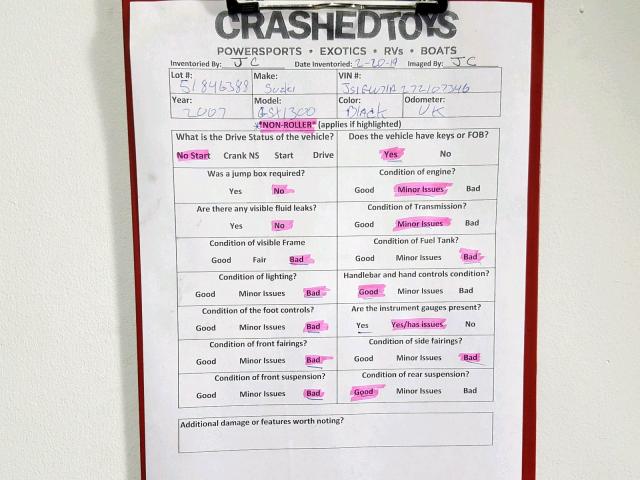 CRASHEDTOYS
POWERSPORTS • EXOTICS • RVs • BOATS
Inventoried By: JC Date Inventoried: 2-20-19 Imaged By: JC
Lot #: Make: VIN #:
51846388 Suzuki
Year: Model: Color: Odometer:
2007 GSX1300 Black UK
*"NON-ROLLER" (applies if highlighted)
What is the Drive Status of the vehicle? Does the vehicle have keys or FOB?
No Start Crank NS Start Drive Yes No
Was a jump box required? Condition of engine?
Yes No Good Minor Issues Bad
Are there any visible fluid leaks? Condition of Transmission?
Yes No Good Minor Issues Bad
Condition of visible Frame Condition of Fuel Tank?
Good Fair Bad Good Minor Issues Bad
Condition of lighting? Handlebar and hand controls condition?
Good Minor Issues Bad Good Minor Issues Bad
Condition of the foot controls? Are the instrument gauges present?
Good Minor Issues Bad Yes Yes/has issues No
Condition of front fairings? Condition of side fairings?
Good Minor Issues Bad Good Minor Issues Bad
Condition of front suspension? Condition of rear suspension?
Good Minor Issues Bad Good Minor Issues Bad
Additional damage or features worth noting?